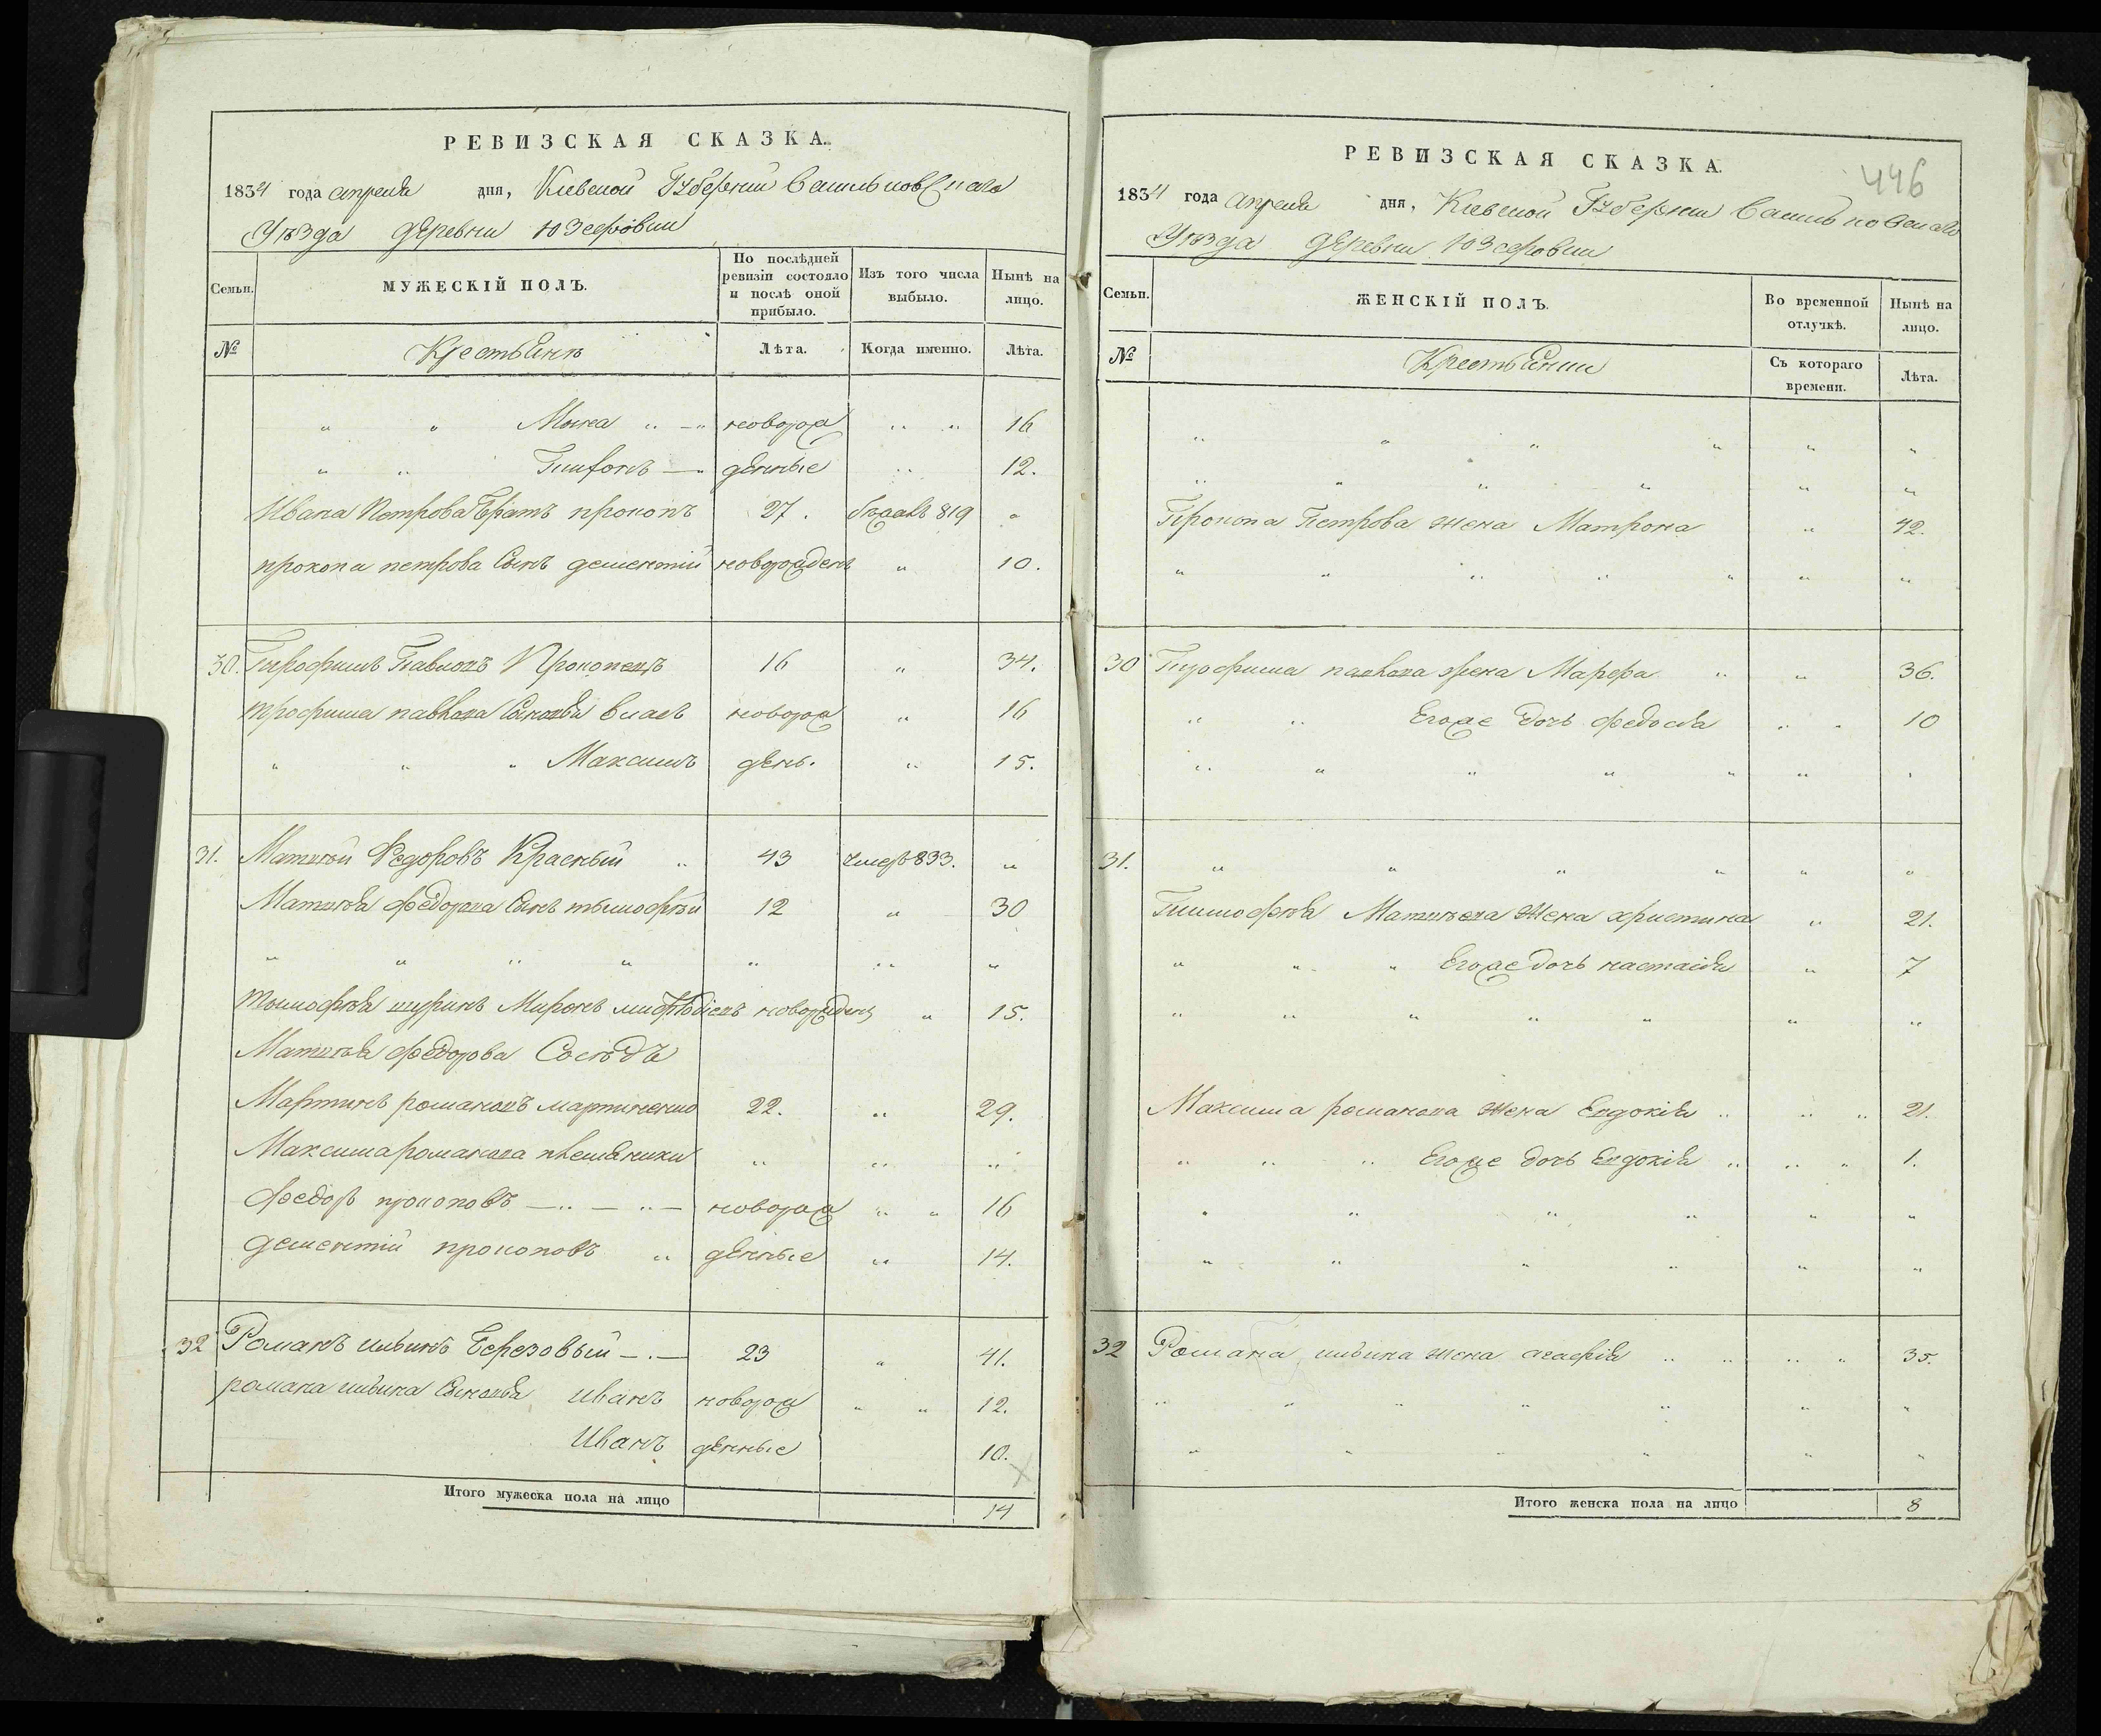 РЕВИЗСКАЯ СКАЗКА.
1834 года апреля дня, Киевской Губернии Васильковскаго
Уѣзда деревни Юзефовки
Семьи. МУЖЕСКІЙ ПОЛЪ. По послѣдней ревизіи состояло и послѣ оной прибыло. Изъ того числа выбыло. Нынѣ на лицо.
№ Крестьянъ Лѣта. Когда именно. Лѣта.
" " Мина " — " новорож " " 16
" " — " денные " 12.
Ивана Петрова Братъ прокопъ 27. бѣжалъ 819 "
прокопа петрова Сынъ дементій новорожденъ " 10.
30. Трофимъ Павловъ 16 " 34.
трофима павлова Сыновья власъ новорож " 16
" " " Максимъ день. " 15.
31. Матвѣй Федоровъ Красный " 43 умеръ 833. "
Матвѣя федорова Сынъ тымофѣй 12 " 30
" " " " " " "
тымофѣя шуринъ Миронъ новорожденъ " 15.
Матвѣя федорова Сосѣдъ
Мартинъ романовъ мартиненко 22. " 29.
Максима романова племяники " " "
федоръ прокоповъ — " — " — новорож " " 16
дементій прокоповъ " денные " 14.
32 Романъ ильинъ Березовый — . — 23 " 41.
романа ильина Сыновья иванъ новорож " " 12.
Иванъ денные 10.
Итого мужеска пола на лицо 14
446
РЕВИЗСКАЯ СКАЗКА.
1834 года апреля дня, Киевской Губернии Васильковскаго
Уѣзда деревни Юзефовки
Семьи. ЖЕНСКІЙ ПОЛЪ. Во временной отлучкѣ. Нынѣ на лицо.
№ Крестьянки Съ котораго времени. Лѣта.
" " " " " "
" " " " " "
Прокопа Петрова жена Матрона " 42.
" " " " " " "
30 Трофима павлова жена Марфа " " 36.
" " Егоже дочь федосія " " 10
" " " " " " "
31. " " " " " "
Тимофѣя Матвѣева жена христина " 21.
" " " Егоже дочь настасія " 7
" " " " " " "
Максима романова жена Евдокія " " " 21.
" " " Егоже дочь Евдокія " " " 1.
" " " " " "
" " " " " "
32 Романа ильина жена агафія " " " " 35.
" " " " " " "
" " " " " "
Итого женска пола на лицо 8